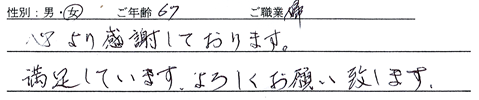 性別：男・女 ご年齢 67 ご職業
心より感謝しております。
満足しています。よろしくお願い致します。